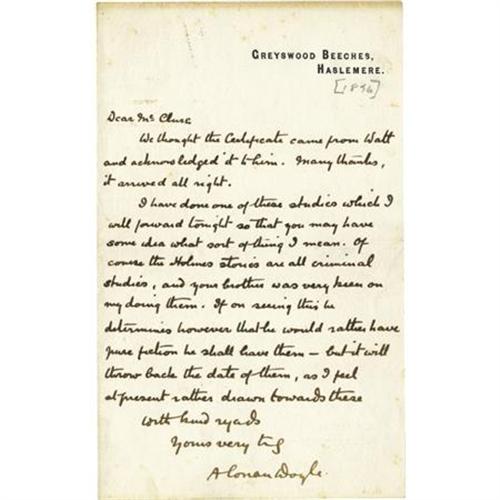 GREYSWOOD BEECHES,
HASLEMERE.
[1896]
Dear Mr Clure
We thought the Certificate came from Watt
and acknowledged it to him. Many thanks,
it arrived all right.
I have done one of these studies which I
will forward tonight so that you may have
some idea what sort of thing I mean. Of
course the Holmes stories are all criminal
studies, and your brother was very keen on
my doing them. If on seeing this he
determines however that he would rather have
pure fiction he shall have them — but it will
throw back the date of them, as I feel
at present rather drawn towards these
With kind regards
Yours very truly
A Conan Doyle.